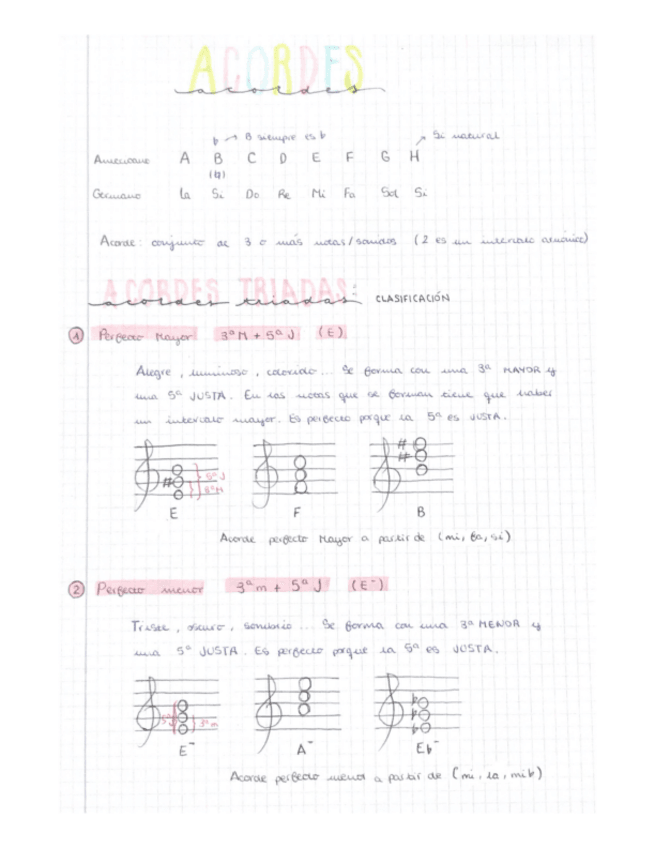 ACORDES
acordes
b → B siempre es b ↗ Si natural
Americano A B C D E F G H
(♮)
Germano La Si Do Re Mi Fa Sol Si
Acorde: conjunto de 3 o más notas/sonidos (2 es un intervalo armónico)
ACORDES TRIADAS:
acordes triadas CLASIFICACIÓN
① Perfecto Mayor 3ª M + 5ª J (E)
Alegre, luminoso, colorido... Se forma con una 3ª MAYOR y
una 5ª JUSTA. En las notas que se forman tiene que haber
un intervalo mayor. Es perfecto porque la 5ª es JUSTA.
5ª J
3ª M
E F B
Acorde perfecto Mayor a partir de (mi, fa, si)
② Perfecto menor 3ª m + 5ª J (E⁻)
Triste, oscuro, sombrío... Se forma con una 3ª MENOR y
una 5ª JUSTA. Es perfecto porque la 5ª es JUSTA.
5ª 3ª m
E⁻ A⁻ Eb⁻
Acorde perfecto menor a partir de (mi, la, mib)